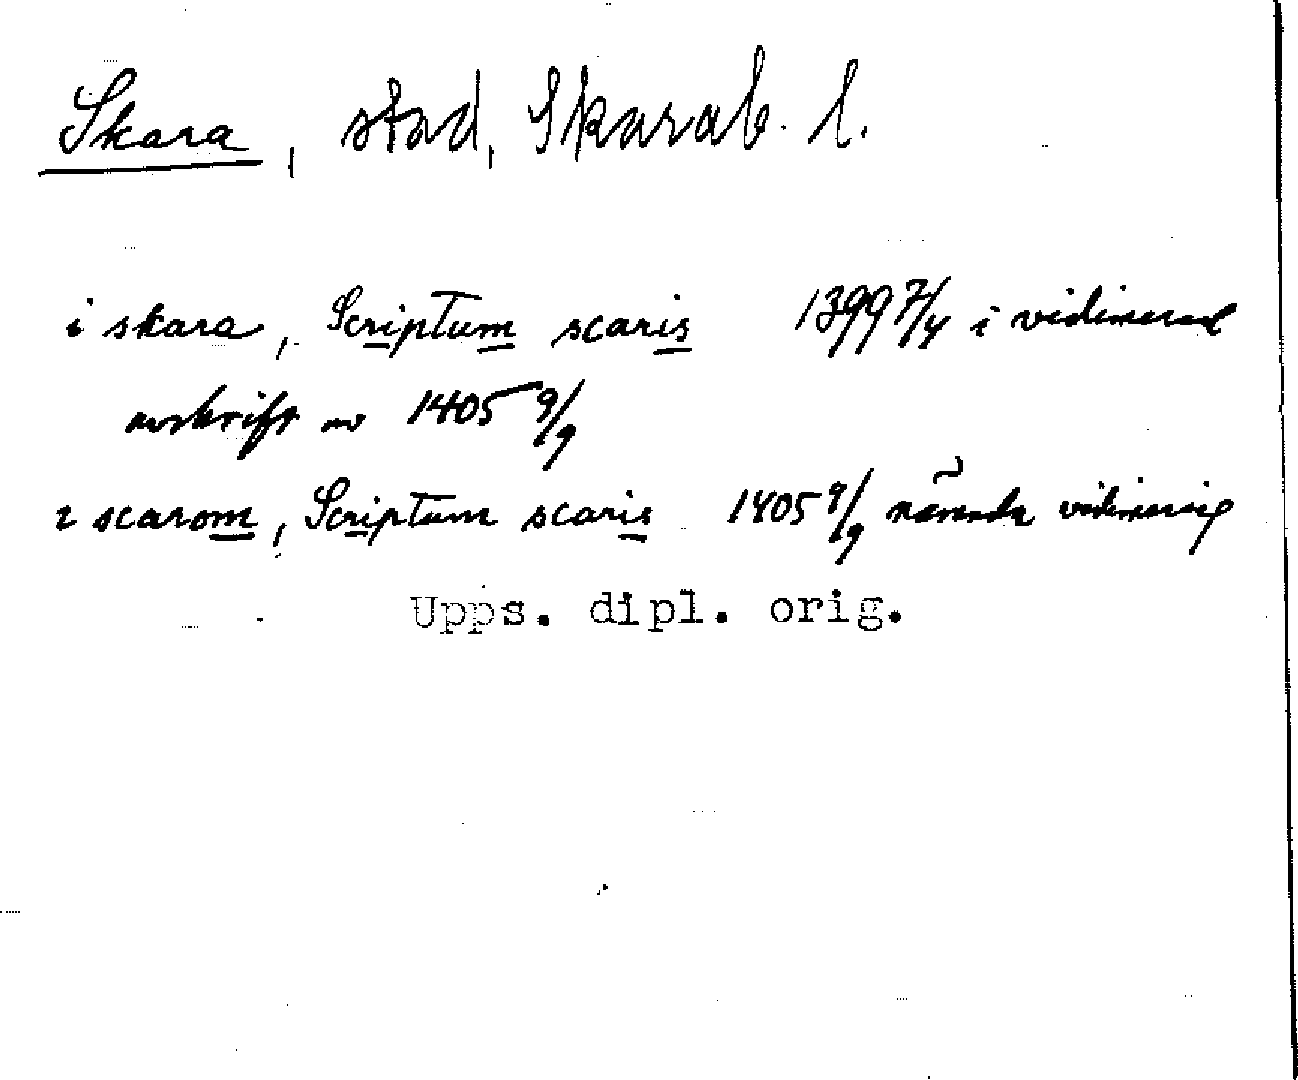 Skara, stad, Skarab. l.
i skara, Scriptum scaris 1399 7/4 i vidimerad
avskrift av 1405 9/9
i scarom, Scriptum scaris 1405 9/9 nämnda vidimering
Upps. dipl. orig.